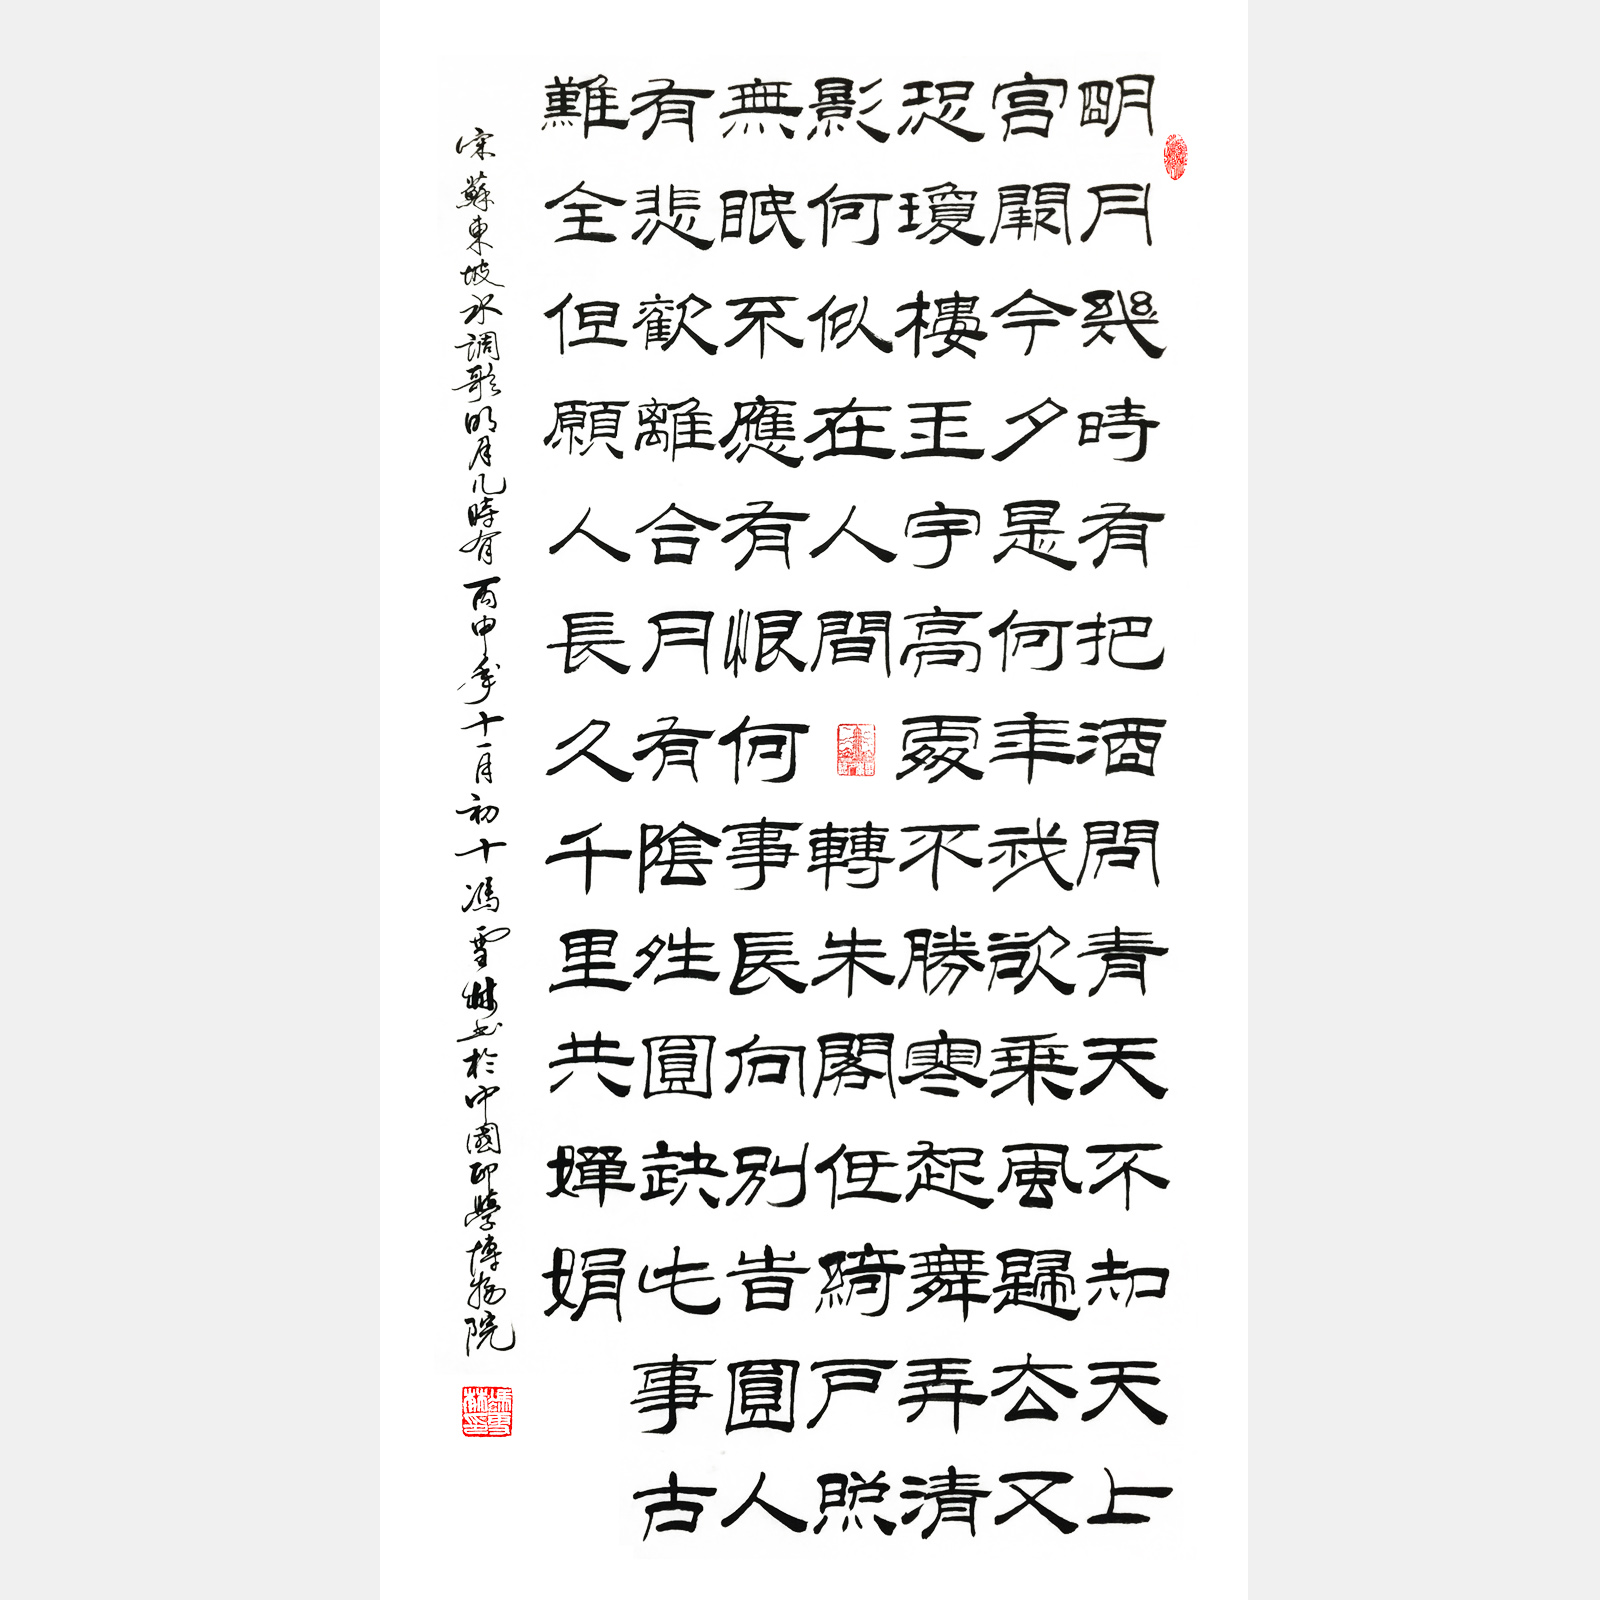 明月幾時有把酒問青天不知天上
宮闕今夕是何年我欲乘風歸去又
恐瓊樓玉宇高處不勝寒起舞弄清
影何似在人間
轉朱閣低綺戶照
無眠不應有恨何事長向別時圓人
有悲歡離合月有陰晴圓缺此事古
難全但願人長久千里共嬋娟
宋蘇東坡水調歌明月几時有丙申年十一月初十馮雪林书於中國印學博物院
馮雪林印